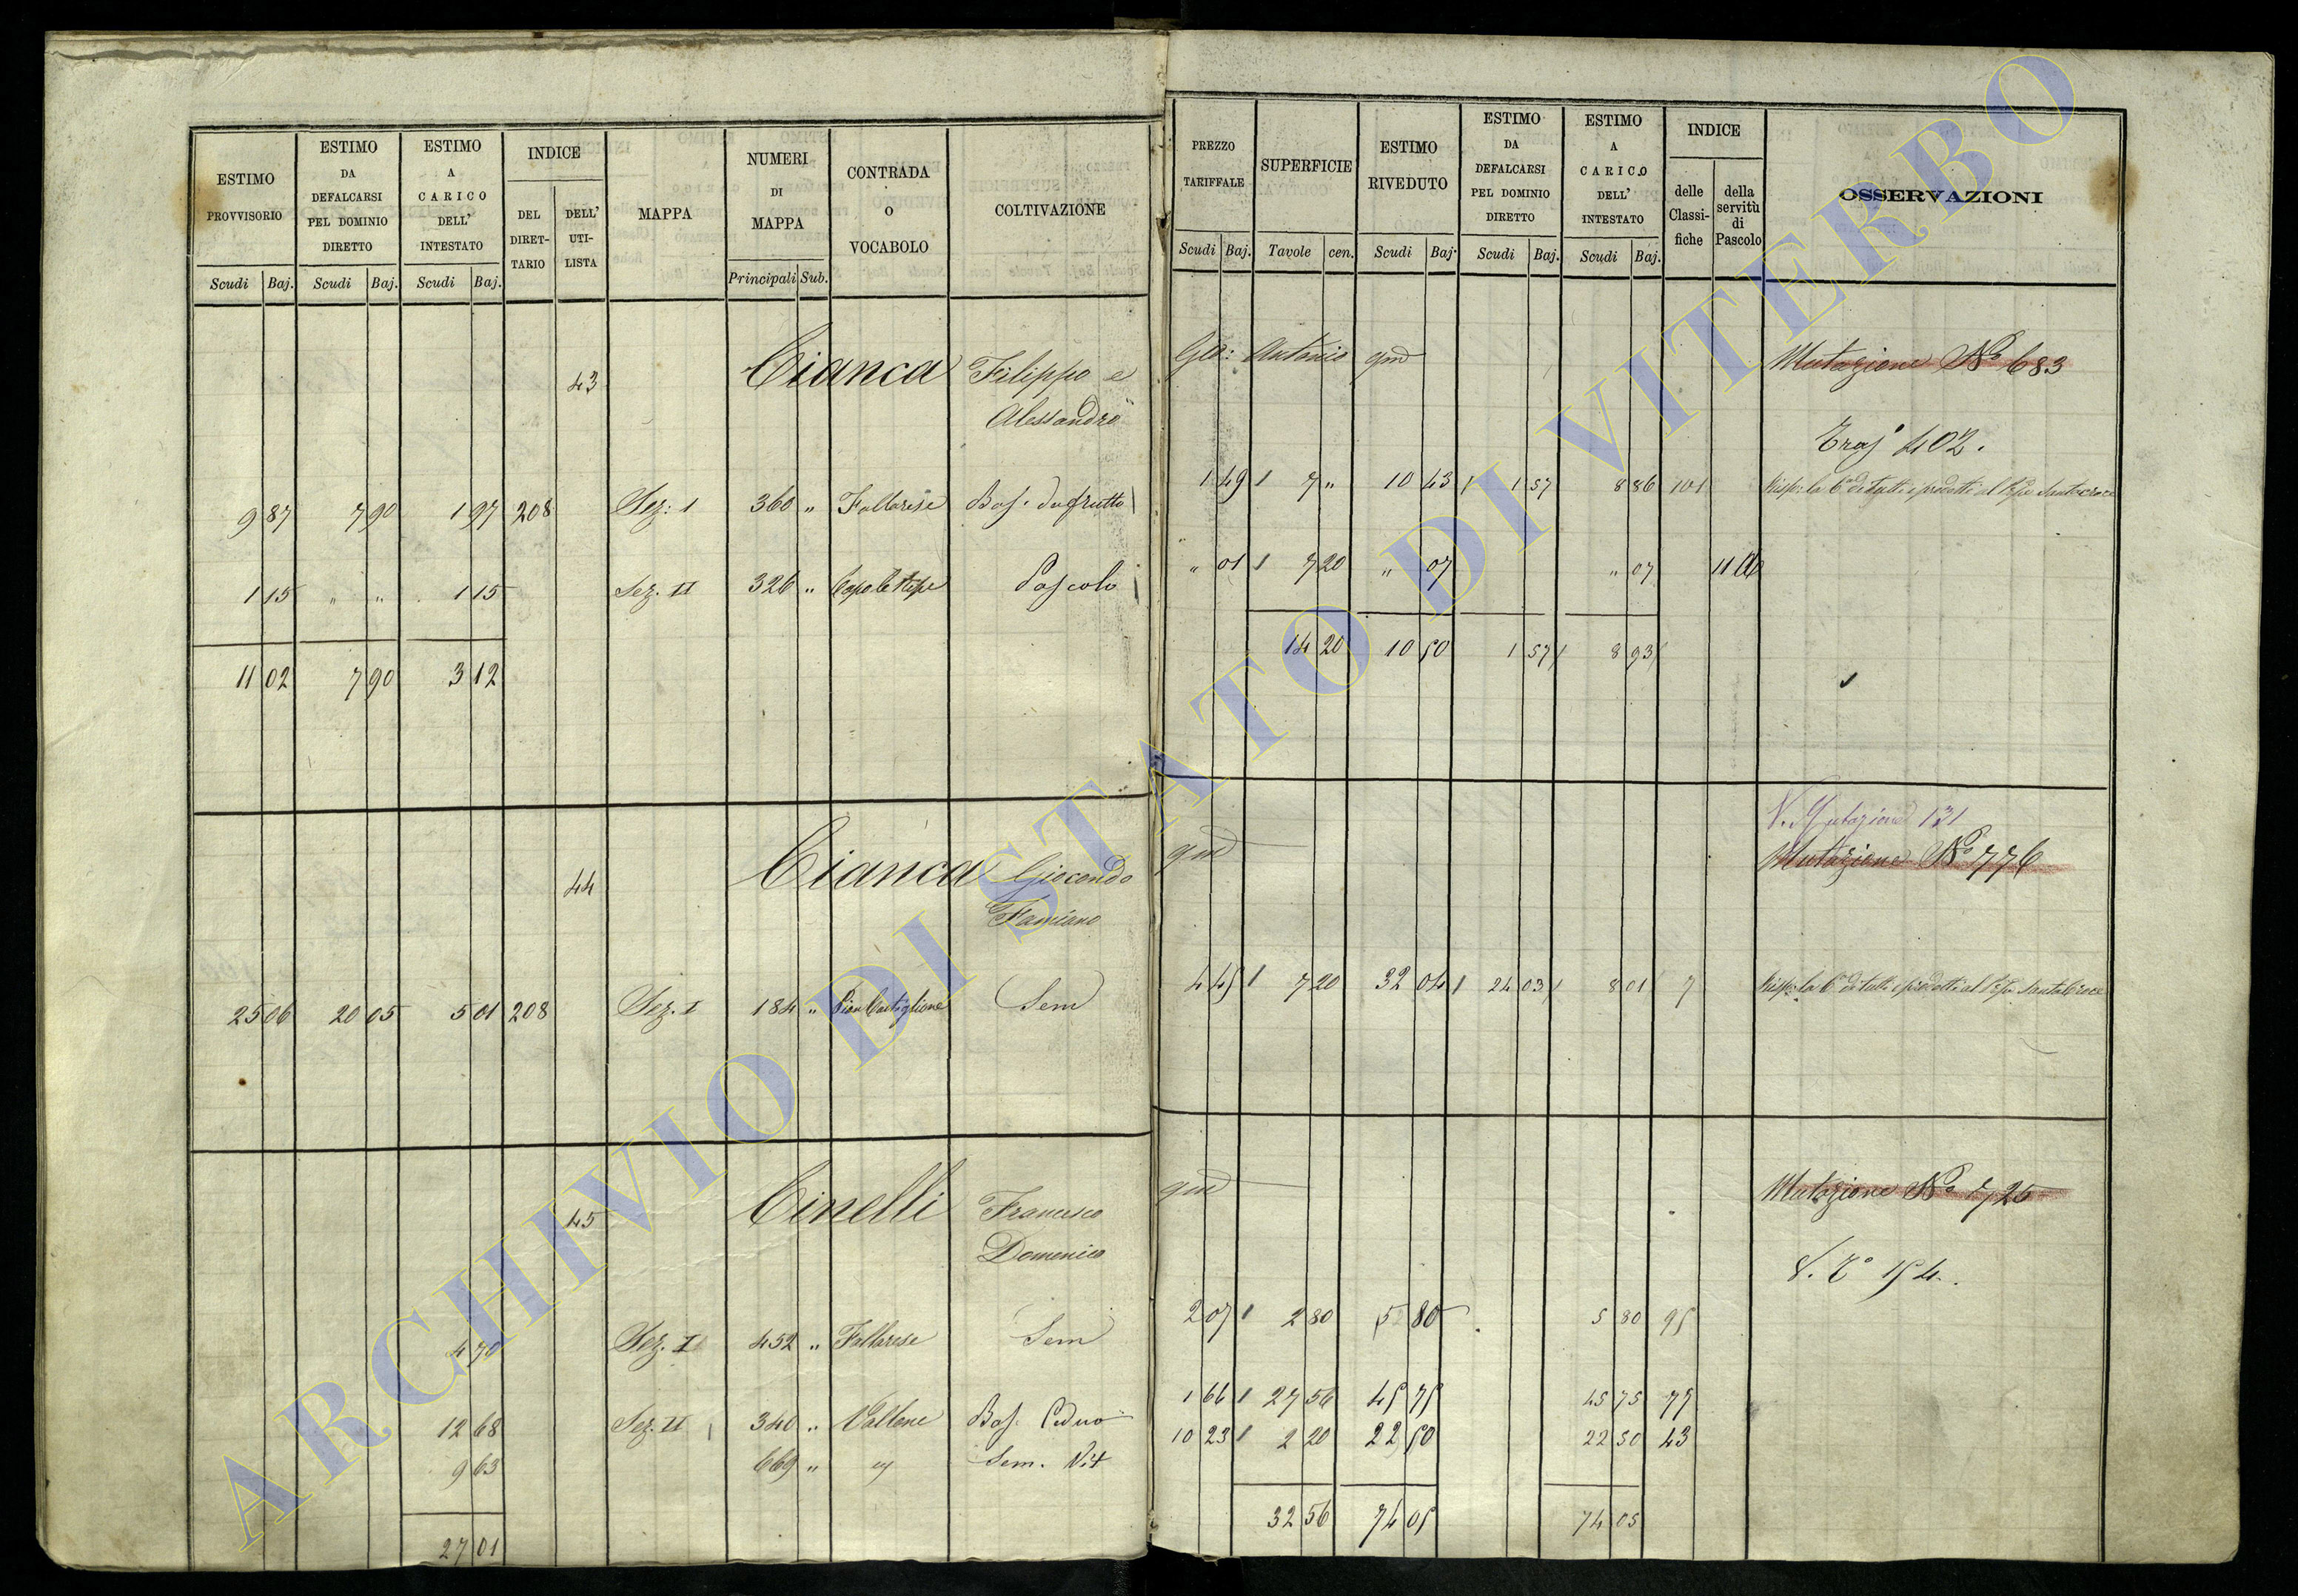 ESTIMO PROVVISORIO
Scudi Baj.
ESTIMO DA DEFALCARSI PEL DOMINIO DIRETTO
Scudi Baj.
ESTIMO A CARICO DELL' INTESTATO
Scudi Baj.
INDICE
DEL DIRET-TARIO
DELL' UTI-LISTA
MAPPA
NUMERI DI MAPPA
Principali Sub.
CONTRADA O VOCABOLO
COLTIVAZIONE
PREZZO TARIFFALE
Scudi Baj.
SUPERFICIE
Tavole cen.
ESTIMO RIVEDUTO
Scudi Baj.
ESTIMO DA DEFALCARSI PEL DOMINIO DIRETTO
Scudi Baj.
ESTIMO A CARICO DELL' INTESTATO
Scudi Baj.
INDICE
delle Classi-fiche
della servitù di Pascolo
OSSERVAZIONI
43 Cianca Filippo e Gio: Antonio qm Mutazione No 683
Alessandro
402.
9 87 7 90 1 97 208 Sez: I 360 " Fallarese Bos. da frutto 1 49 7 " 10 43 1 57 8 86 101
1 15 " " 1 15 Sez. II 326 " Pascolo " 01 7 20 " 07 " 07
11 02 7 90 3 12 14 20 10 50 1 57 8 93
V. Mutazione 131
44 Cianca Giocondo qm Mutazione No 776
Famiano
25 06 20 05 5 01 208 Sez. I 184 " Pian Castiglione Sem 4 45 7 20 32 04 24 03 8 01 7
45 Cinelli Francesco qm Mutazione No 725
Domenico
154.
4 70 Sez. I 452 " Fallarese Sem 2 07 2 80 5 80 5 80 95
12 68 Sez. II 340 " Vallone Bos. Ceduo 1 66 27 56 45 75 45 75 77
9 63 669 " Sem. Vit 10 23 2 20 22 50 22 50 43
27 01 32 56 74 05 74 05
ARCHIVIO DI STATO DI VITERBO